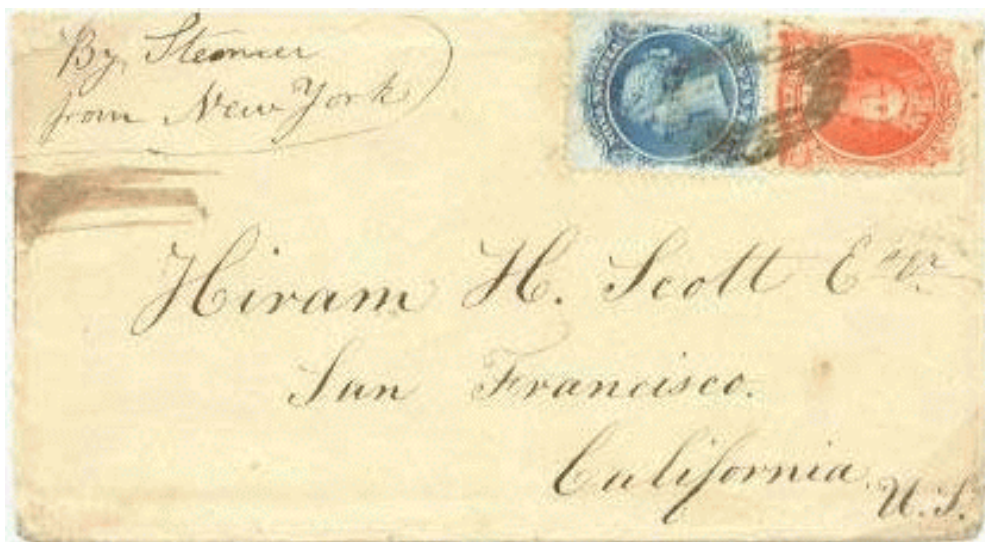 By Steamer
from New York
Hiram H. Scott Esqr.
San Francisco.
California
U.S.